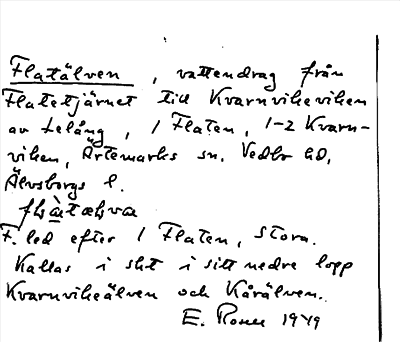 Flatälven, vattendrag från
Flatetjärnet till Kvarnvikeviken
av Lelång, 1 Flaten, 1-2 Kvarn-
viken, Ärtemarks sn, Vedbo hd,
Älvsborgs l.
F. led efter 1 Flaten, Stora.
Kallas i sht i sitt nedre lopp
Kvarnvikeälven och Kårälven.
E. Rosell 1949